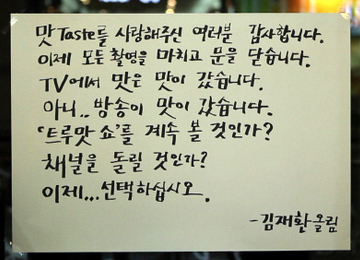 맛Taste를 사랑해주신 여러분 감사합니다.
이제 모든 촬영을 마치고 문을 닫습니다.
TV에서 맛은 맛이 갔습니다.
아니.. 방송이 맛이 갔습니다.
'트루맛 쇼'를 계속 볼 것인가?
채널을 돌릴 것인가?
이제... 선택하십시오.
-김재환 올림